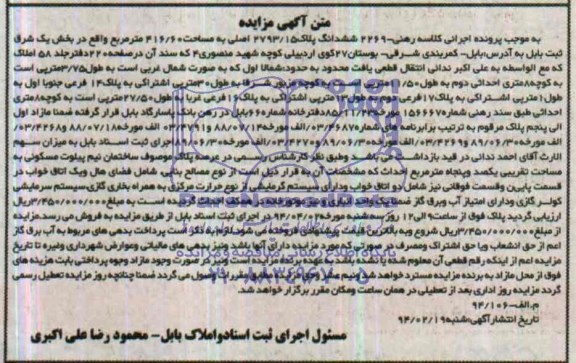 متن آگهی مزایده
به موجب پرونده اجرائی کلاسه رهنی-۲۲۶۹ ششدانگ پلاک۲۷۹۳/۱۵ اصلی به مساحت۴۱۶/۶۰ مترمربع واقع در بخش یک شرق
ثبت بابل به آدرس:بابل- کمربندی شرقی- بوستان۲۷کوی اردبیلی کوچه شهید منصوری۴ که سند آن درصفحه۲۲۰دفترجلد ۵۸ املاک
که مع الواسطه به علی اکبر ندائی انتقال قطعی یافت محدود به حدود:شمالا اول که به صورت شمال غربی است به طول۳/۷۵مترپی است
به کوچه۸متری احداثی دوم به طول ۱۱/۵۰مترپی است به کوچه مزبور شرقا به طول۳۰مترپی اشتراکی به پلاک۱۴ فرعی جنوبا اول به
طول۱مترپی اشتراکی به پلاک۱۷فرعی دوم به طول۱۳مترپی اشتراکی به پلاک۱۶ فرعی غربا به طول۲۷/۵۰مترپی است به کوچه۸متری
احداثی طبق سند رهنی شماره۱۵۶۶۶۷مورخه دفترخانه شماره۶۶بابل در رهن بانک پاسارگاد بابل قرار گرفته ضمنا مازاد اول
الی پنجم پلاک مرقوم به ترتیب برابرنامه های شماره
الارث آقای احمد ندائی در قید بازداشت می باشد و طبق نظر کارشناس رسمی در عرصه پلاک موصوف ساختمان نیم پیلوت مسکونی به
مساحت تقریبی یکصد وپنجاه مترمربع احداث که مشخصات آن به قرار ذیل است از نوع مصالح بنایی، شامل فضای هال ویک اتاق خواب در
قسمت پایین وقسمت فوقانی نیز شامل دو اتاق خواب ودارای سیستم گرمایشی از نوع حرارت مرکزی به همراه بخاری گازی-سیستم سرمایشی
کولر گازی ودارای امتیاز آب وبرق گاز است به مبلغ۳/۴۵۰/۰۰۰/۰۰۰ریال
ارزیابی گردید پلاک فوق از ساعت۹ الی۱۲ روز سه شنبه مورخه در اجرای ثبت اسناد بابل از طریق مزایده به فروش می رسد.مزایده
از مبلغ۳/۴۵۰/۰۰۰/۰۰۰ریال شروع وبه بالاترین قیمت پیشنهادی فروخته می شود.لازم به ذکر است پرداخت بدهی های مربوط به آب برق گاز
اعم از حق انشعاب ویا حق اشتراک ومصرف در صورتی که مورد مزایده دارای آنها باشد ونیز بدهی های مالیاتی وعوارض شهرداری وغیره تا تاریخ
مزایده اعم از اینکه رقم قطعی آن معلوم شده یا نشده باشد به عهده برنده مزایده است ونیز در صورت وجود مازاد وجوه پرداختی بابت هزینه های
فوق از محل مازاد به برنده مزایده مسترد خواهد شد ونیم عشر وحق مزایده نقدا وصول می گردد ضمنا چنانچه روز مزایده تعطیل رسمی
گردد مزایده روز اداری بعد از تعطیلی در همان ساعت ومکان مقرر برگزار خواهد شد.
م.الف-۹۴/۱۰۶
تاریخ انتشار آگهی:شنبه۹۴/۰۲/۱۹
مسئول اجرای ثبت اسنادواملاک بابل- محمود رضا علی اکبری